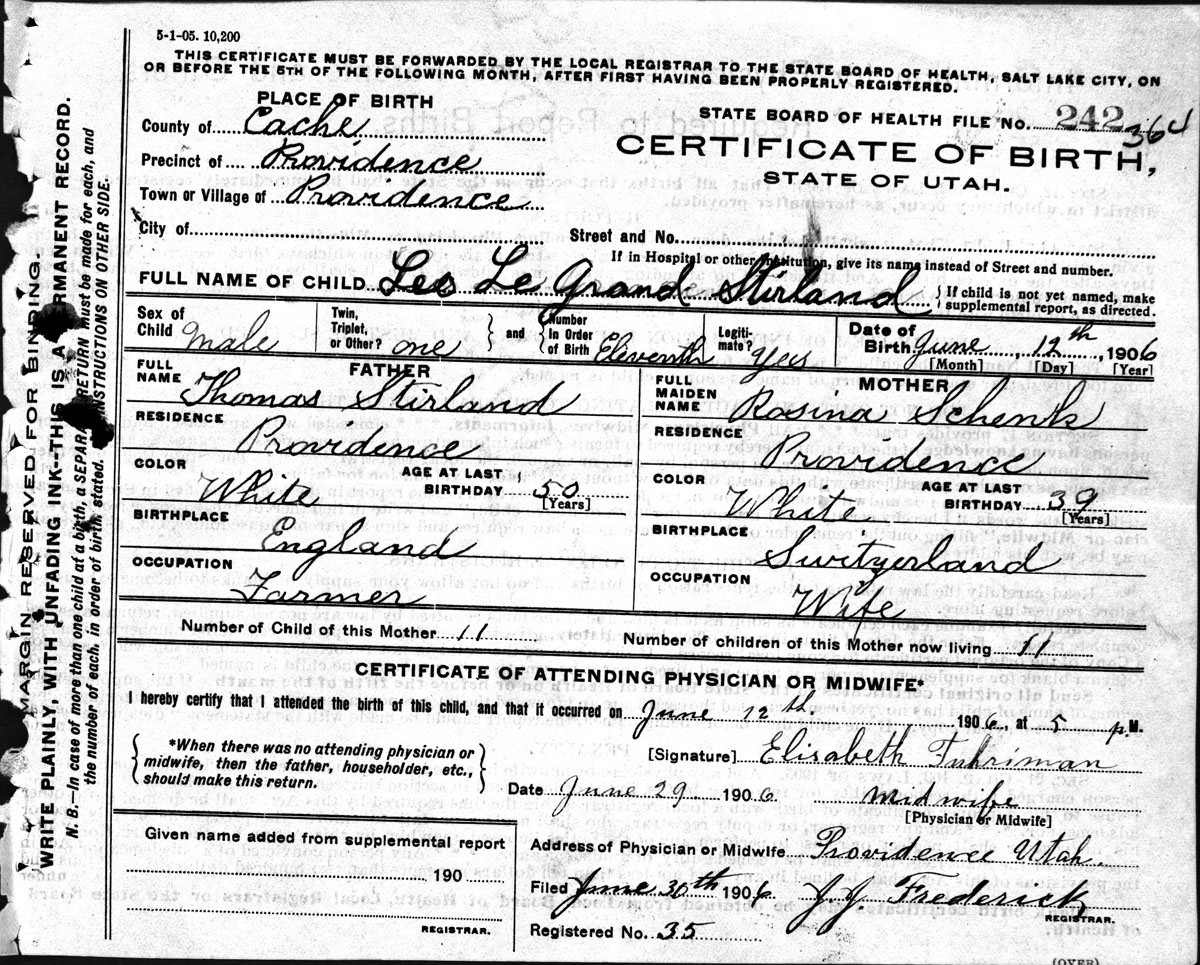 5-1-05. 10,200
THIS CERTIFICATE MUST BE FORWARDED BY THE LOCAL REGISTRAR TO THE STATE BOARD OF HEALTH, SALT LAKE CITY, ON
OR BEFORE THE 5TH OF THE FOLLOWING MONTH, AFTER FIRST HAVING BEEN PROPERLY REGISTERED.
PLACE OF BIRTH
County of Cache
Precinct of Providence
Town or Village of Providence
City of
STATE BOARD OF HEALTH FILE NO. 242 364
CERTIFICATE OF BIRTH,
STATE OF UTAH.
Street and No.
If in Hospital or other institution, give its name instead of Street and number.
FULL NAME OF CHILD Leo Le Grande Stirland { If child is not yet named, make
supplemental report, as directed.
Sex of Child Male Twin, Triplet, or Other? one } and { Number In Order of Birth Eleventh Legiti-mate? Yes Date of Birth June 12th, 1906
[Month] [Day] [Year]
FATHER
FULL NAME Thomas Stirland
RESIDENCE Providence
COLOR White AGE AT LAST BIRTHDAY 50 [Years]
BIRTHPLACE England
OCCUPATION Farmer
MOTHER
FULL MAIDEN NAME Rosina Schenk
RESIDENCE Providence
COLOR White AGE AT LAST BIRTHDAY 39 [Years]
BIRTHPLACE Switzerland
OCCUPATION Wife
Number of Child of this Mother 11 Number of children of this Mother now living 11
CERTIFICATE OF ATTENDING PHYSICIAN OR MIDWIFE*
I hereby certify that I attended the birth of this child, and that it occurred on June 12th. 1906, at 5 p.M.
{ *When there was no attending physician or
midwife, then the father, householder, etc.,
should make this return. }
[Signature] Elisabeth Fuhriman
Date June 29 1906 Midwife
[Physician or Midwife]
Given name added from supplemental report
190
REGISTRAR.
Address of Physician or Midwife Providence Utah.
Filed June 30th 1906 J. J. Frederick
REGISTRAR.
Registered No. 35
(OVER)
MARGIN RESERVED FOR BINDING.
WRITE PLAINLY, WITH UNFADING INK—THIS IS A PERMANENT RECORD.
N. B.—In case of more than one child at a birth, a SEPARATE RETURN must be made for each, and
the number of each, in order of birth stated. INSTRUCTIONS ON OTHER SIDE.